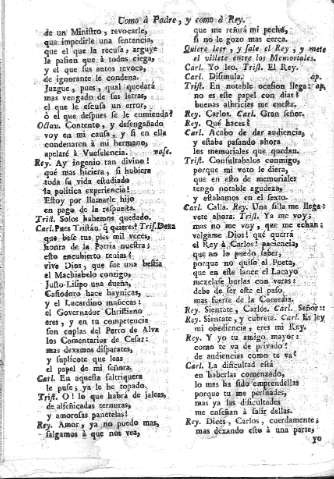 Como à Padre, y como à Rey.
de un Ministro, revocarle,
que impedirle una sentencia,
que el que la recusa, arguye
la pasion que à todos ciega,
y el que sus autos revoca,
de ignorante le condena.
Juzgue, pues, qual quedará
mas vengado de sus letras,
el que le escusa un error,
ò el que despues se le enmienda?
Octav. Contento, y desengañado
voy en mi causa, y si en ella
condenaren à mi hermano,
apelarè à Vuesencia. vase.
Rey. Ay ingenio tan divino!
què mas hiciera, si hubiera
toda su vida estudiado
la politica experiencia!
Estoy por llamarle hijo
en pago de la respuesta.
Trist. Solos habemos quedado.
Carl. Pues Tristàn, què quieres? Trist. Dexa
que bese tus pies mil veces,
honra de la Patria nuestra:
esto encubierto tenias?
vive Dios, que fue una bestia
el Machiabelo contigo,
Justo Lipso una dueña,
Casiodoro hace baynicas,
y el Lacardino muñecas:
el Governador Christiano
eres, y en tu competencia
son coplas del Perro de Alva
los Comentarios de Cesar:
mas dexamos disparates,
y suplicote que leas
el papel de mi señora.
Carl. En aquesta faltriquera
le puse, ya le he topado.
Trist. O! lo que habrà de jalèas,
de alfeñicadas ternuras,
y amorosas panetelas!
Rey. Amor, ya no puedo mas,
salgamos à que nos vea,
que me rebienta mi pecho,
si no le gozo mas cerca.
Quiere leer, y sale el Rey, y mete
el villete entre los Memoriales.
Carl. Yo leo. Trist. El Rey.
Carl. Disimula. ap.
Trist. En notable ocasion llega: ap.
no es este papel con dias?
buenas albricias me cuesta.
Rey. Carlos. Carl. Gran señor.
Rey. Què haces?
Carl. Acabo de dar audiencia,
y estaba pasando ahora
los memoriales que quedan.
Trist. Consultabalos conmigo,
porque mi voto le diera,
que en esto de memoriales
tengo notable agudeza,
y estabamos en el sexto.
Carl. Calla. Rey. Una silla me llega:
vete ahora. Trist. Yo me voy;
mas no me voy, que me echan:
valgame Dios! què querrà
el Rey à Carlos? paciencia,
que no lo puedo saber,
porque no quiso el Poeta,
que en este lance el Lacayo
metiese burlas con veras:
debo de ser este el paso,
mas fuerte de la Comedia.
Rey. Sientate, Carlos. Carl. Señor::
Rey. Sientate, y cubrete. Carl. Es ley
mi obediencia, eres mi Rey.
Rey. Y yo tu amigo mayor:
como te va de privado?
de audiencias como te va?
Carl. La dificultad està
en haberlas comenzado,
lo mas ha sido emprendellas
porque tu me persuades,
mas ya las dificultades
me enseñan à salir dellas.
Rey. Dices, Carlos, cuerdamente;
mas dexando esto à una parte,
yo